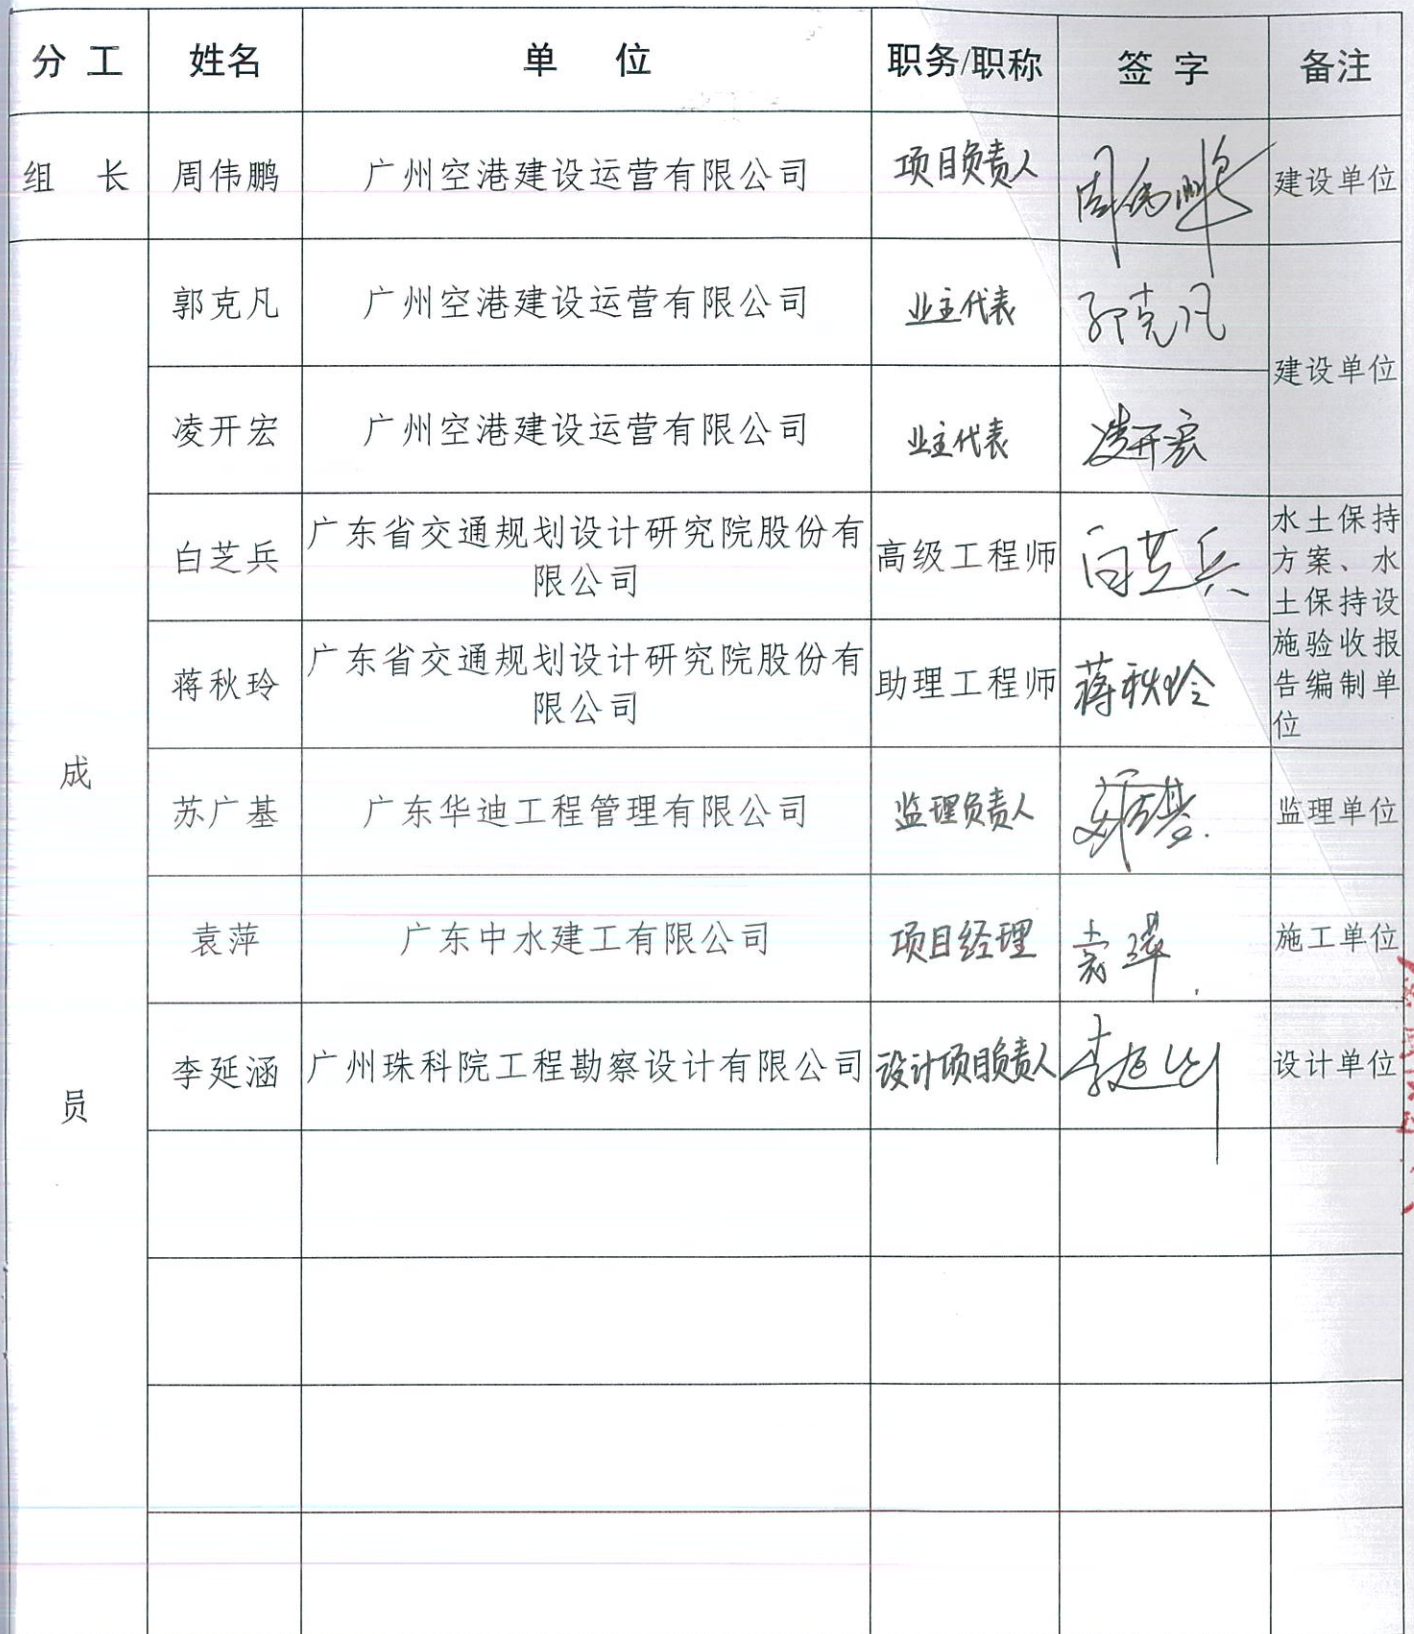 分 工 姓名 单 位 职务/职称 签 字 备注
组 长 周伟鹏 广州空港建设运营有限公司 项目负责人 周伟鹏 建设单位
成
员
郭克凡 广州空港建设运营有限公司 业主代表 郭克凡 建设单位
凌开宏 广州空港建设运营有限公司 业主代表 凌开宏
白芝兵 广东省交通规划设计研究院股份有
限公司 高级工程师 白芝兵
水土保持
方案、水
土保持设
施验收报
告编制单
位
蒋秋玲 广东省交通规划设计研究院股份有
限公司 助理工程师 蒋秋玲
苏广基 广东华迪工程管理有限公司 监理负责人 苏广基 监理单位
袁萍 广东中水建工有限公司 项目经理 袁萍 施工单位
李延涵 广州珠科院工程勘察设计有限公司 设计项目负责人 李延涵 设计单位